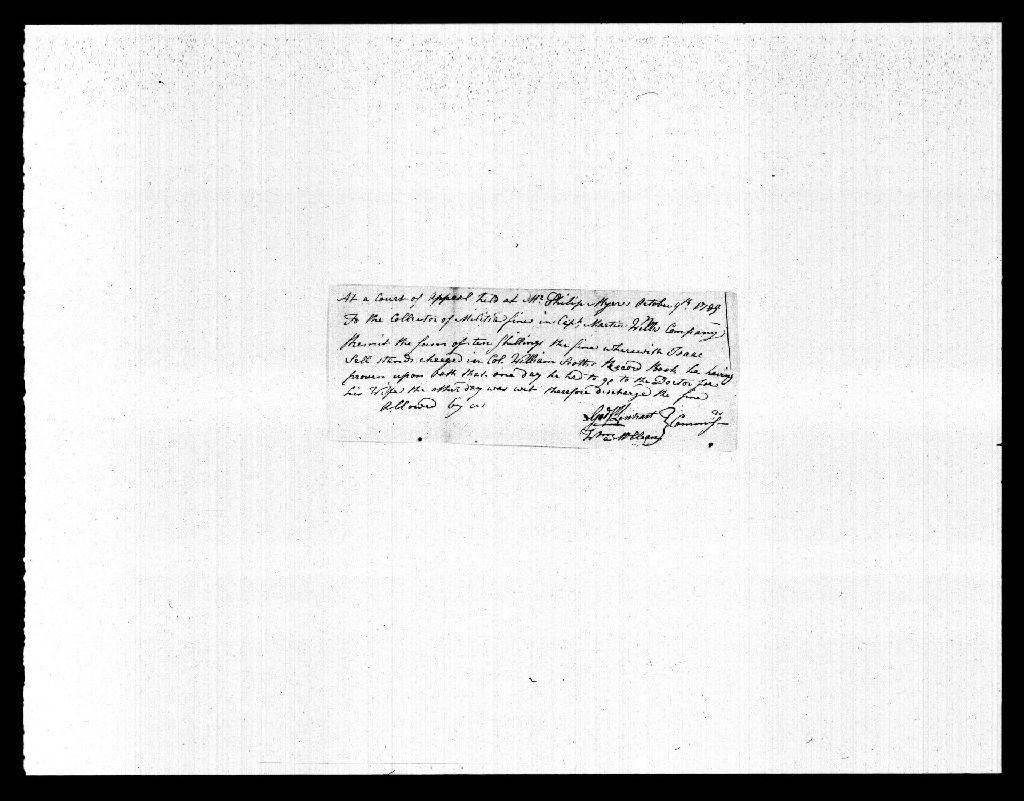 At a Court of Appeal held at Mr. Philip Myers October 9th 1789
To the Collector of Militia fines in Capt. Martin Wills Company
Remit the sum of ten Shillings the fine wherewith Isaac
Sell stands charged in Col. William Scotts Record Book he having
proven upon oath that one day he had to go to the Doctor for
his Wife the other day was wet therefore discharge the fine
Allowed by us
Lenhart
Wm McClean